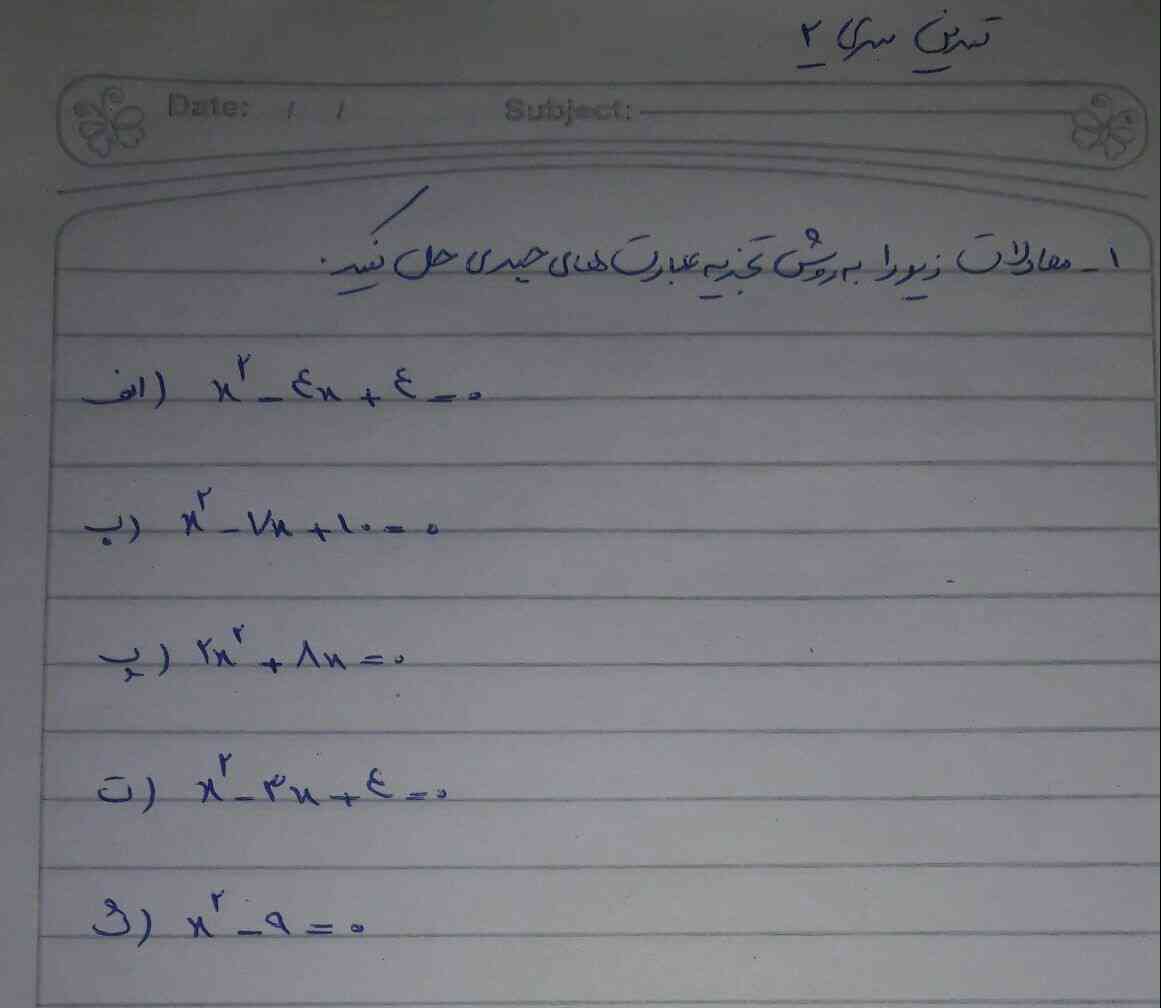 تمرین سری ۲
Date: / / Subject:
۱- معادلات زیر را به روش تجزیه عبارت های جبری حل کنید.
الف) x^۲ - ٤x + ٤ = ۰
ب) x^۲ - ۷x + ۱۰ = ۰
پ) ۲x^۲ + ۸x = ۰
ت) x^۲ - ۳x + ٤ = ۰
ث) x^۲ - ۹ = ۰